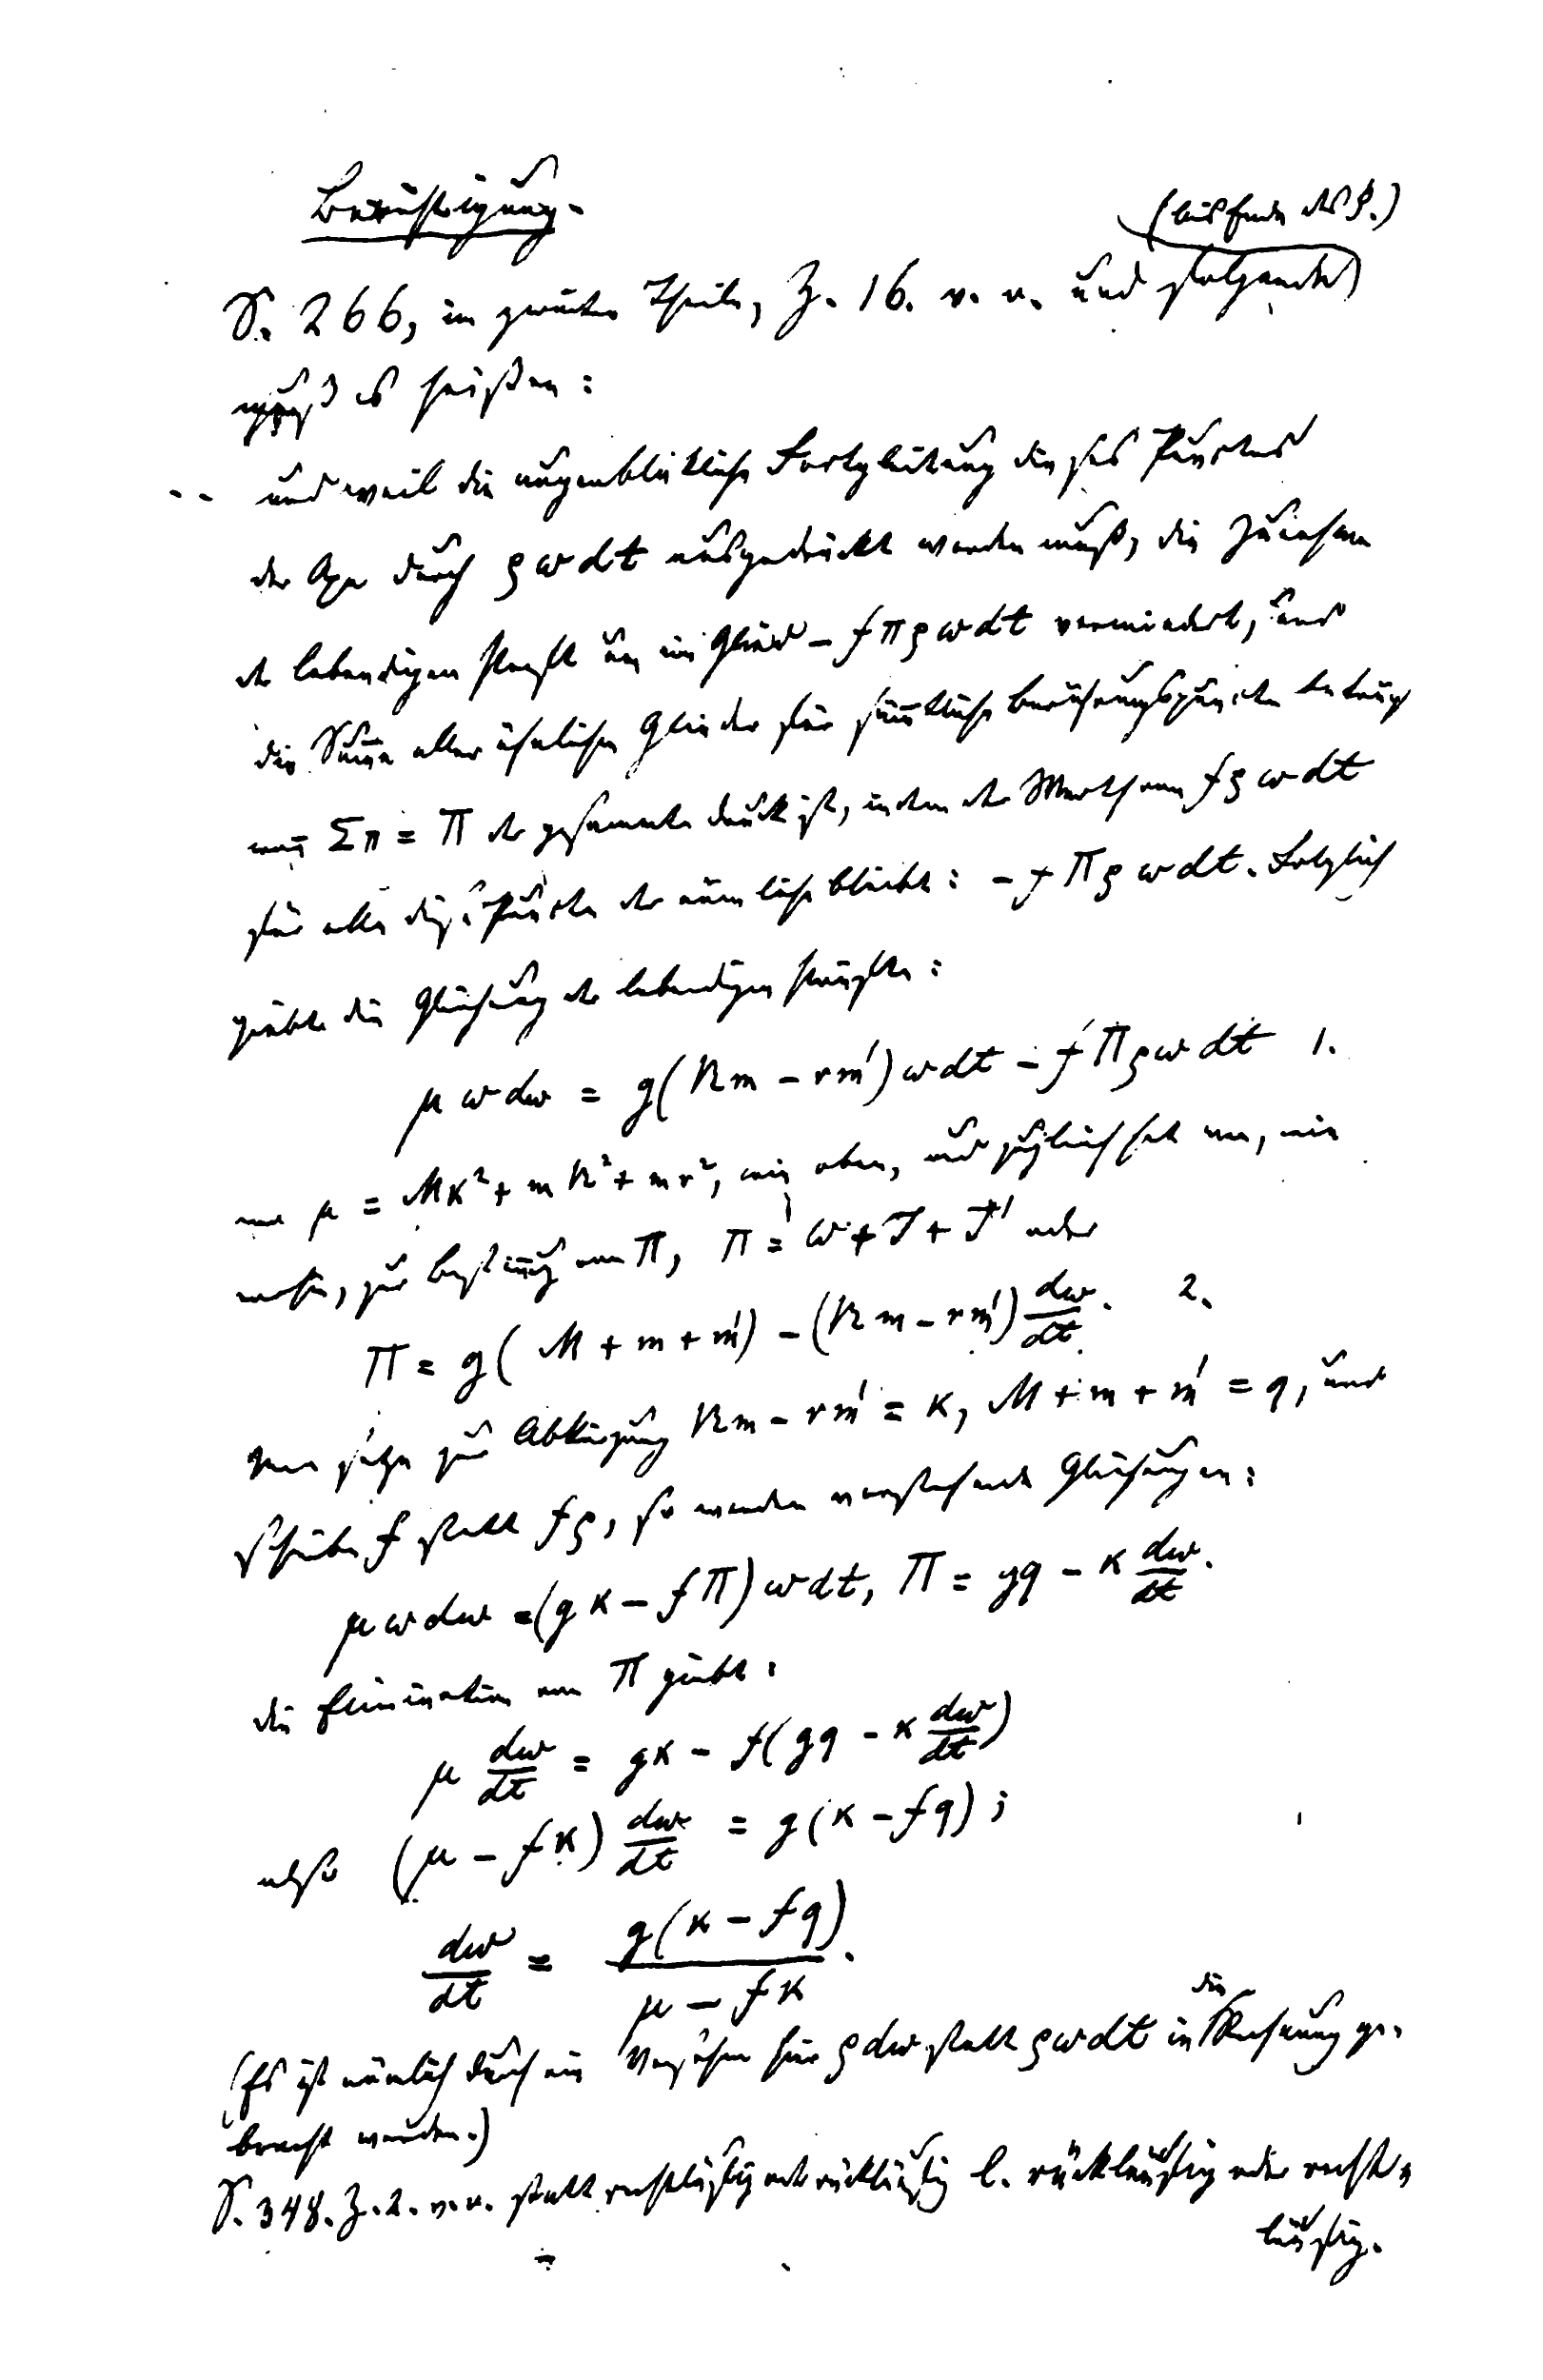 Berichtigung.
(bis Ende des §.)
S. 266, im zweiten Theile, Z. 16. v. u. und folgende
muß es heißen:
-- und weil die augenblickliche Fortgleitung dieses Punctes
der Axe durch ρωdt ausgedrückt werden muß, die Zunahme
der lebendigen Kraft um ein Glied – fπρωdt vermindert, und
die Summe aller ähnlichen Glieder für sämtliche Berührungspuncte beträgt
wenn Σπ = Π der gesammte Druck ist, indem der Werth von fρωdt
für alle diese Puncte der nämliche bleibt: – fΠρωdt. Folglich
giebt die Gleichung der lebendigen Kräfte:
μωdω = g(Rm – rm')ωdt – f'Πρωdt 1.
wo μ = MK² + mR² + mr², wie oben, und zugleich hat man, wie
vorhin, zur Bestimmung von Π, Π = W + T + T' oder
Π = g(M + m + m') – (Rm – rm') dω/dt. 2.
Man setze zur Abkürzung Rm – rm' = κ, M + m + m' = q, und
schreibe f statt fρ, so werden vorstehende Gleichungen:
μωdω = (gκ – fΠ)ωdt, Π = gq – κ dω/dt.
die Elimination von Π giebt:
μ dω/dt = gκ – f(gq – κ dω/dt)
also (μ – fκ) dω/dt = g(κ – fq);
dω/dt = g(κ – fq)/(μ – fκ).
(Es ist nämlich durch ein Versehen hier ρdω statt ρωdt in die Rechnung ge-
bracht worden.)
S. 348. Z. 2. v. u. statt rechtläufig oder rückläufig l. rückläufig oder recht-
läufig.